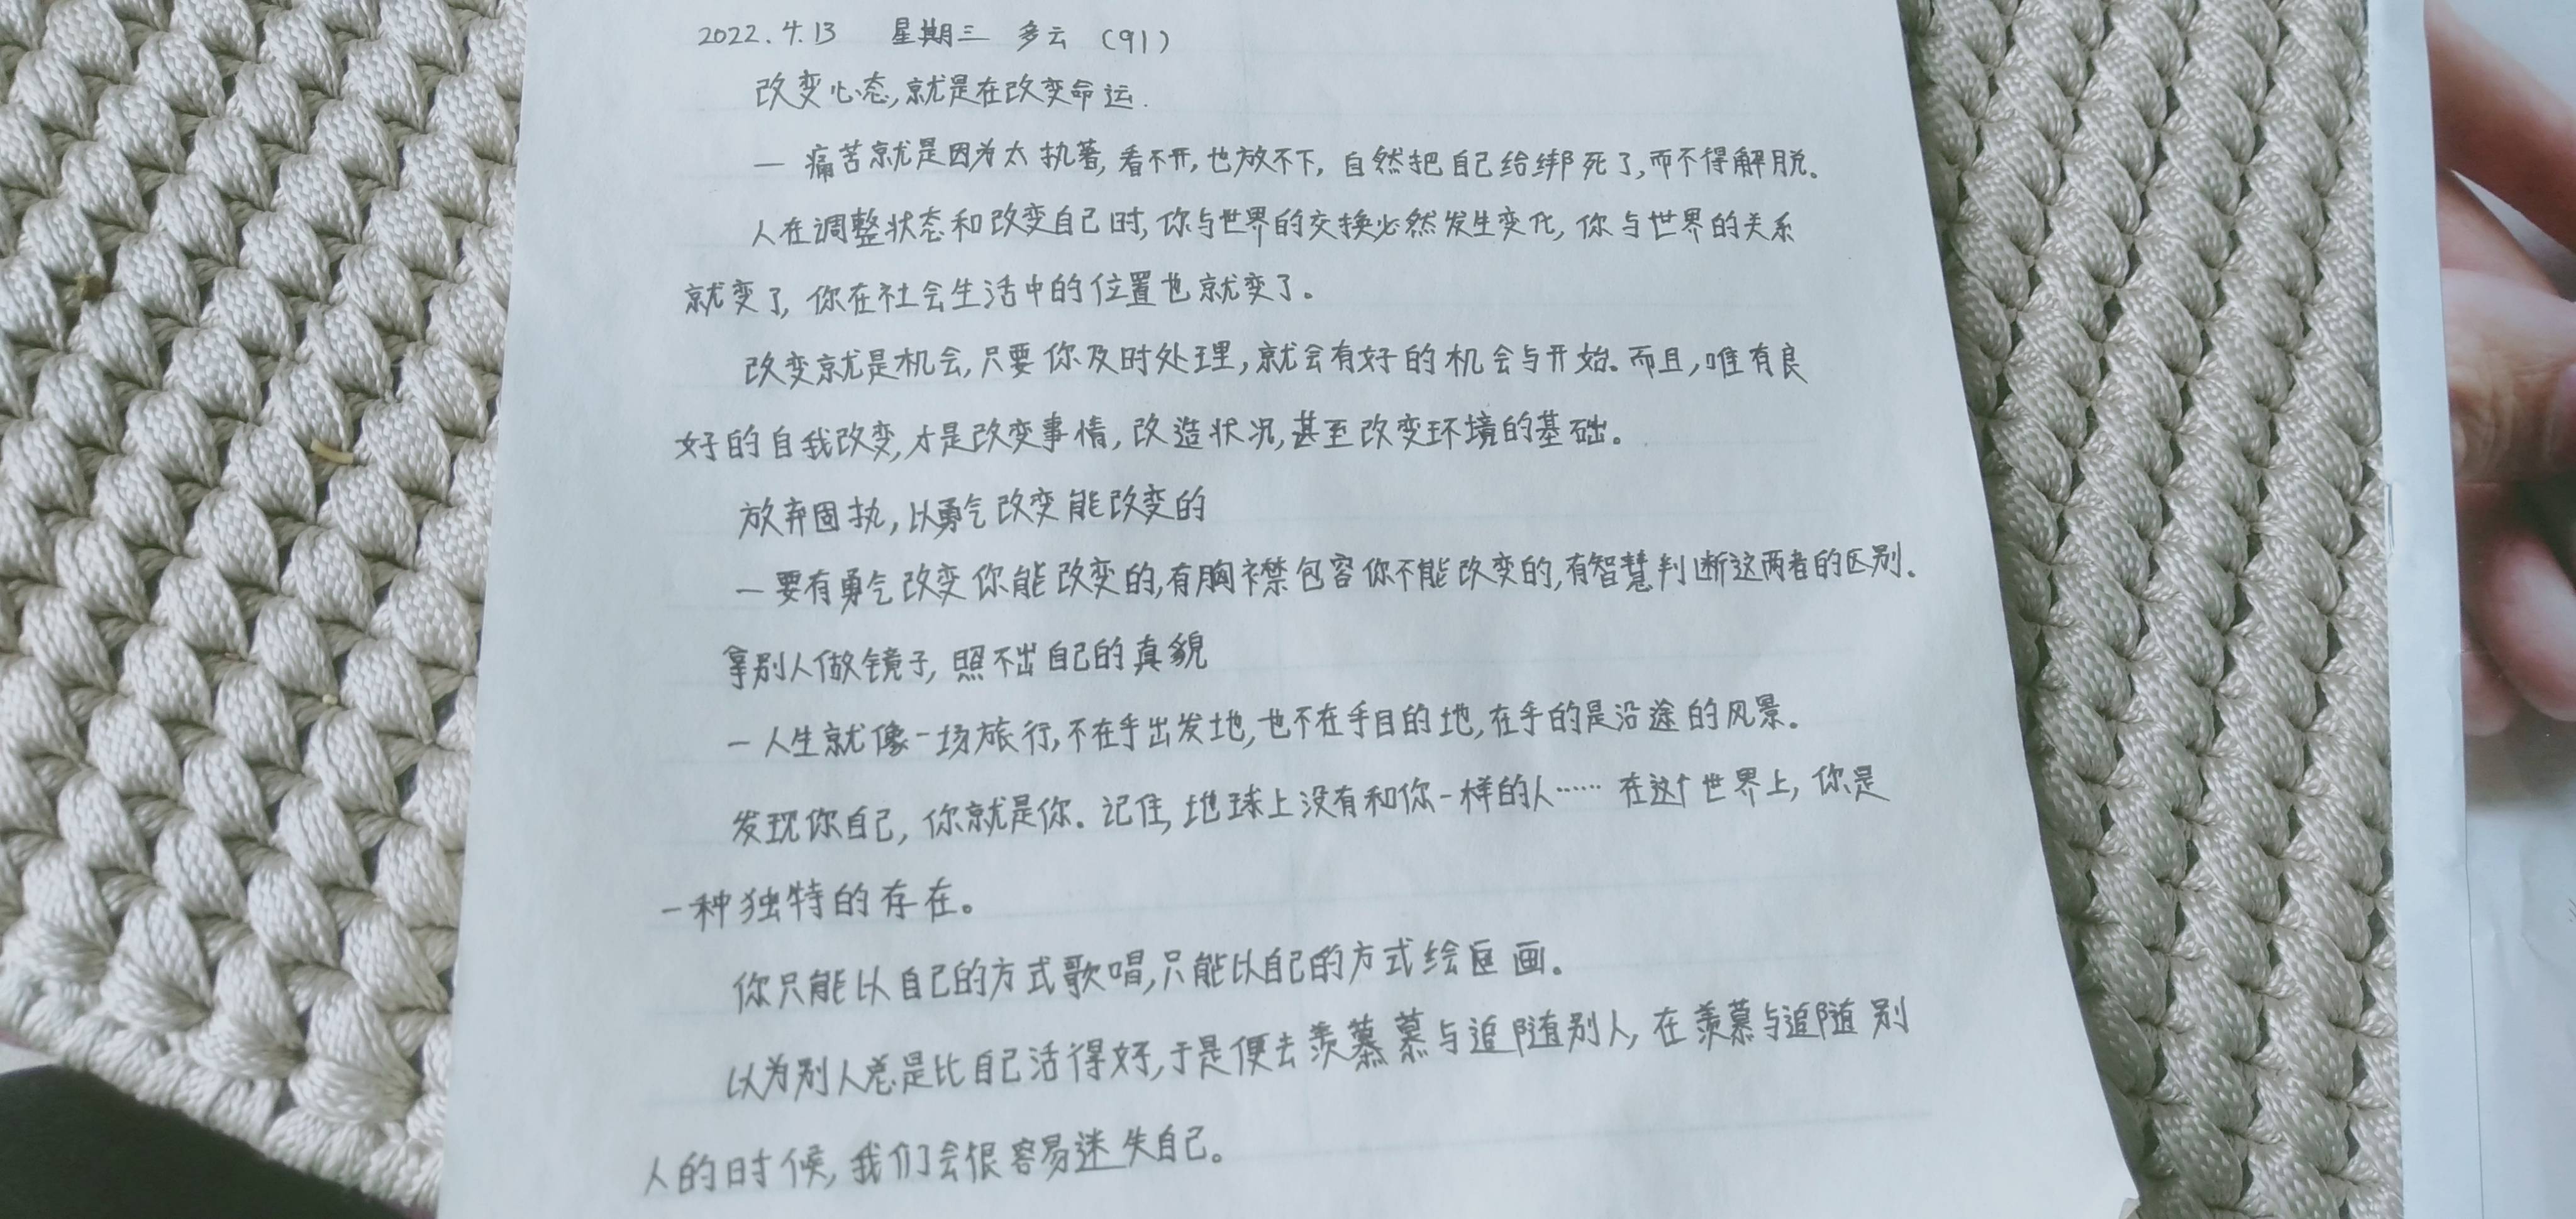 2022.4.13 星期三 多云 (91)
改变心态,就是在改变命运.
— 痛苦就是因为太执著,看不开,也放不下,自然把自己给绑死了,而不得解脱。
人在调整状态和改变自己时,你与世界的交换必然发生变化,你与世界的关系
就变了,你在社会生活中的位置也就变了。
改变就是机会,只要你及时处理,就会有好的机会与开始。而且,唯有良
好的自我改变,才是改变事情,改造状况,甚至改变环境的基础。
放弃固执,以勇气改变能改变的
— 要有勇气改变你能改变的,有胸襟包容你不能改变的,有智慧判断这两者的区别。
拿别人做镜子,照不出自己的真貌
— 人生就像一场旅行,不在乎出发地,也不在乎目的地,在乎的是沿途的风景。
发现你自己,你就是你.记住,地球上没有和你一样的人……在这个世界上,你是
一种独特的存在。
你只能以自己的方式歌唱,只能以自己的方式绘画。
以为别人总是比自己活得好,于是便去羡慕慕与追随别人,在羡慕与追随别
人的时候,我们会很容易迷失自己。